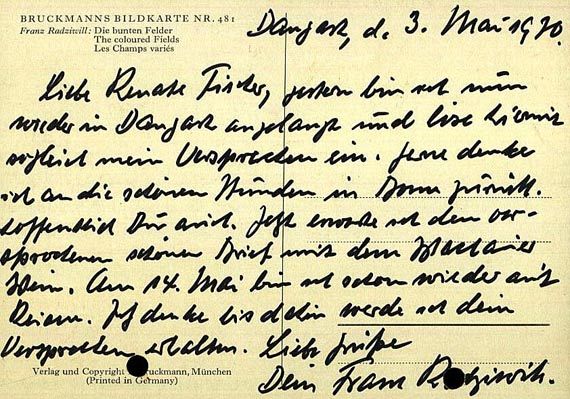 BRUCKMANNS BILDKARTE NR. 481
Franz Radziwill: Die bunten Felder
The coloured Fields
Les Champs variés
Dangast, d. 3. Mai 1970.
Liebe Renate Fischer, gestern bin ich nun
wieder in Dangast angelangt und löse hiermit
sogleich mein Versprechen ein. Gerne denke
ich an die schönen Stunden in Bonn zurück.
Hoffentlich Du auch. Jetzt erwarte ich den ver-
sprochenen schönen Brief mit dem
Wein. Am 14. Mai bin ich schon wieder auf
Reisen. Ich denke bis dahin werde ich dein
Versprechen erhalten. Liebe Grüße
Dein Franz Radziwill.
Verlag und Copyright Bruckmann, München
(Printed in Germany)